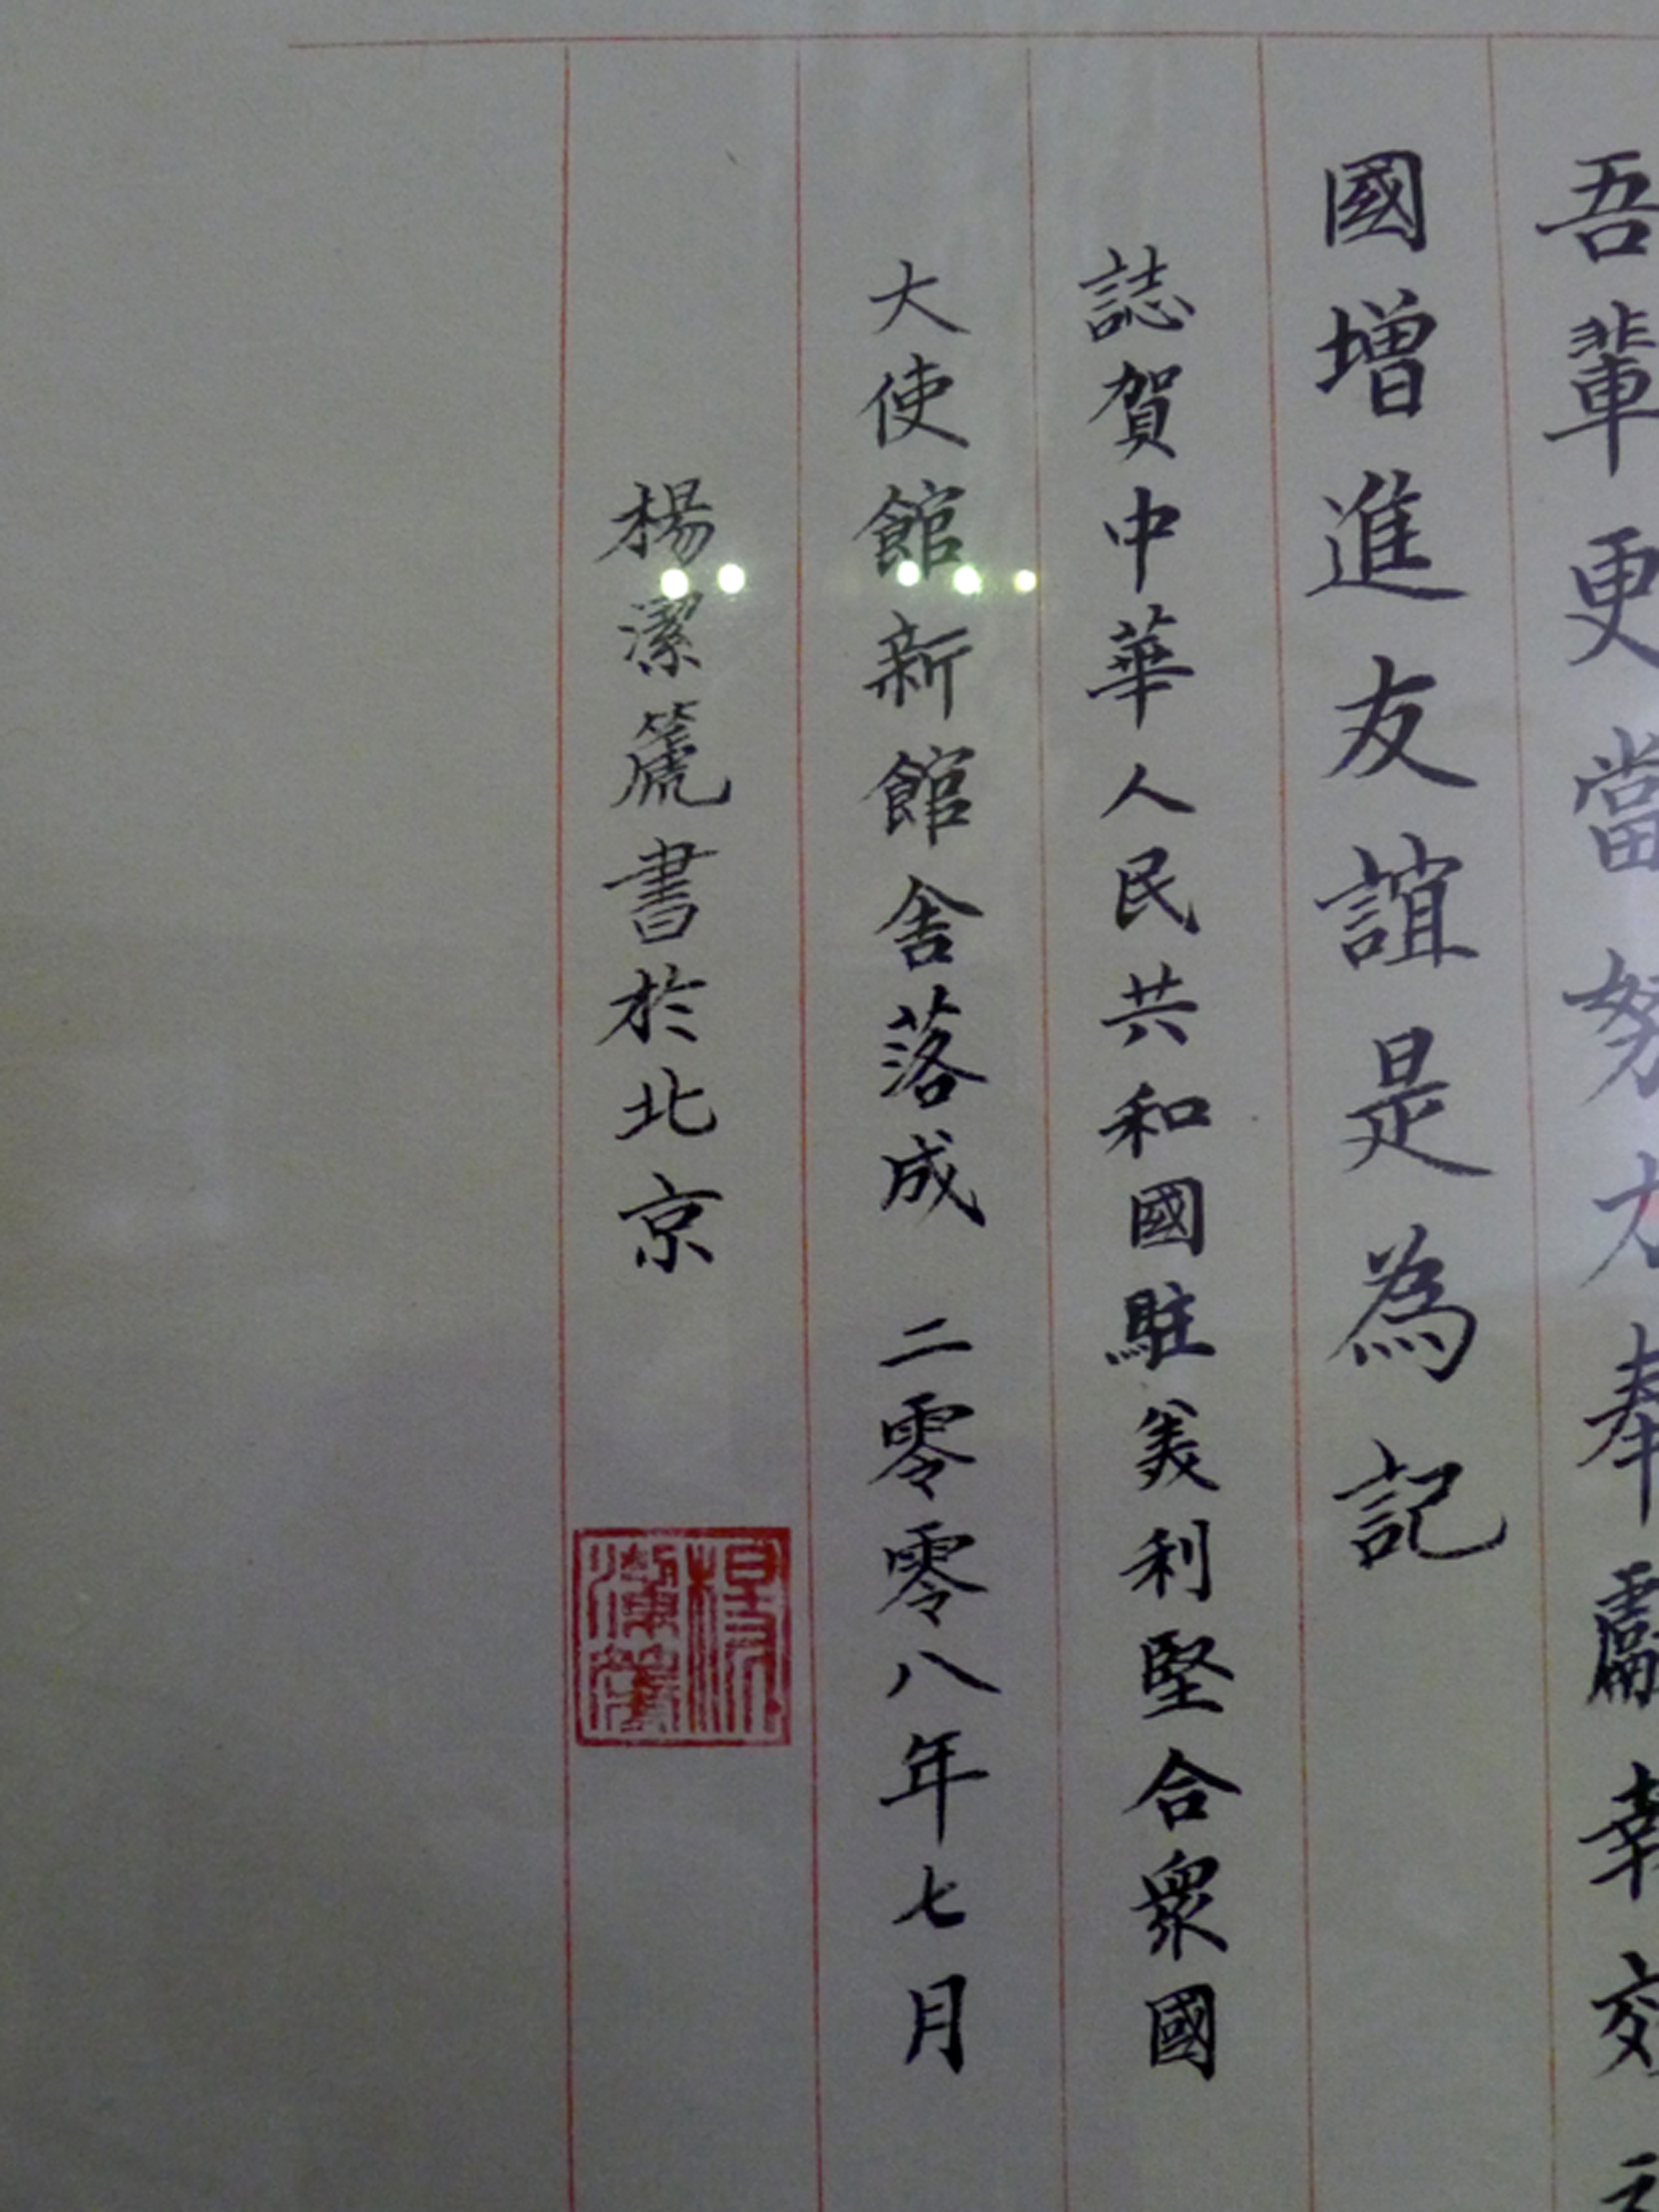 吾輩更當努力奉獻報效祖
國增進友誼是為記
誌賀中華人民共和國駐美利堅合衆國
大使館新館舍落成 二零零八年七月
楊潔篪書於北京
楊潔篪